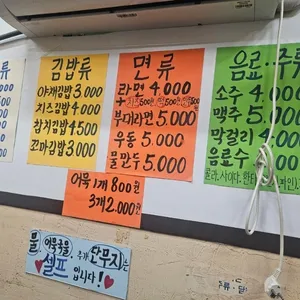 류
김밥류
야채김밥 3.000
치즈김밥 4.000
참치김밥 4.500
꼬마김밥 3.000
면류
라면 4.000
부대라면 5.000
우동 5.000
물만두 5.000
음료·주류
소주 4.000
맥주 5.000
막걸리 4.000
음료수
콜라.사이다.환타
어묵 1개 800원
3개 2.000원
물 어묵국물. 추가 단무지는
셀프 입니다!